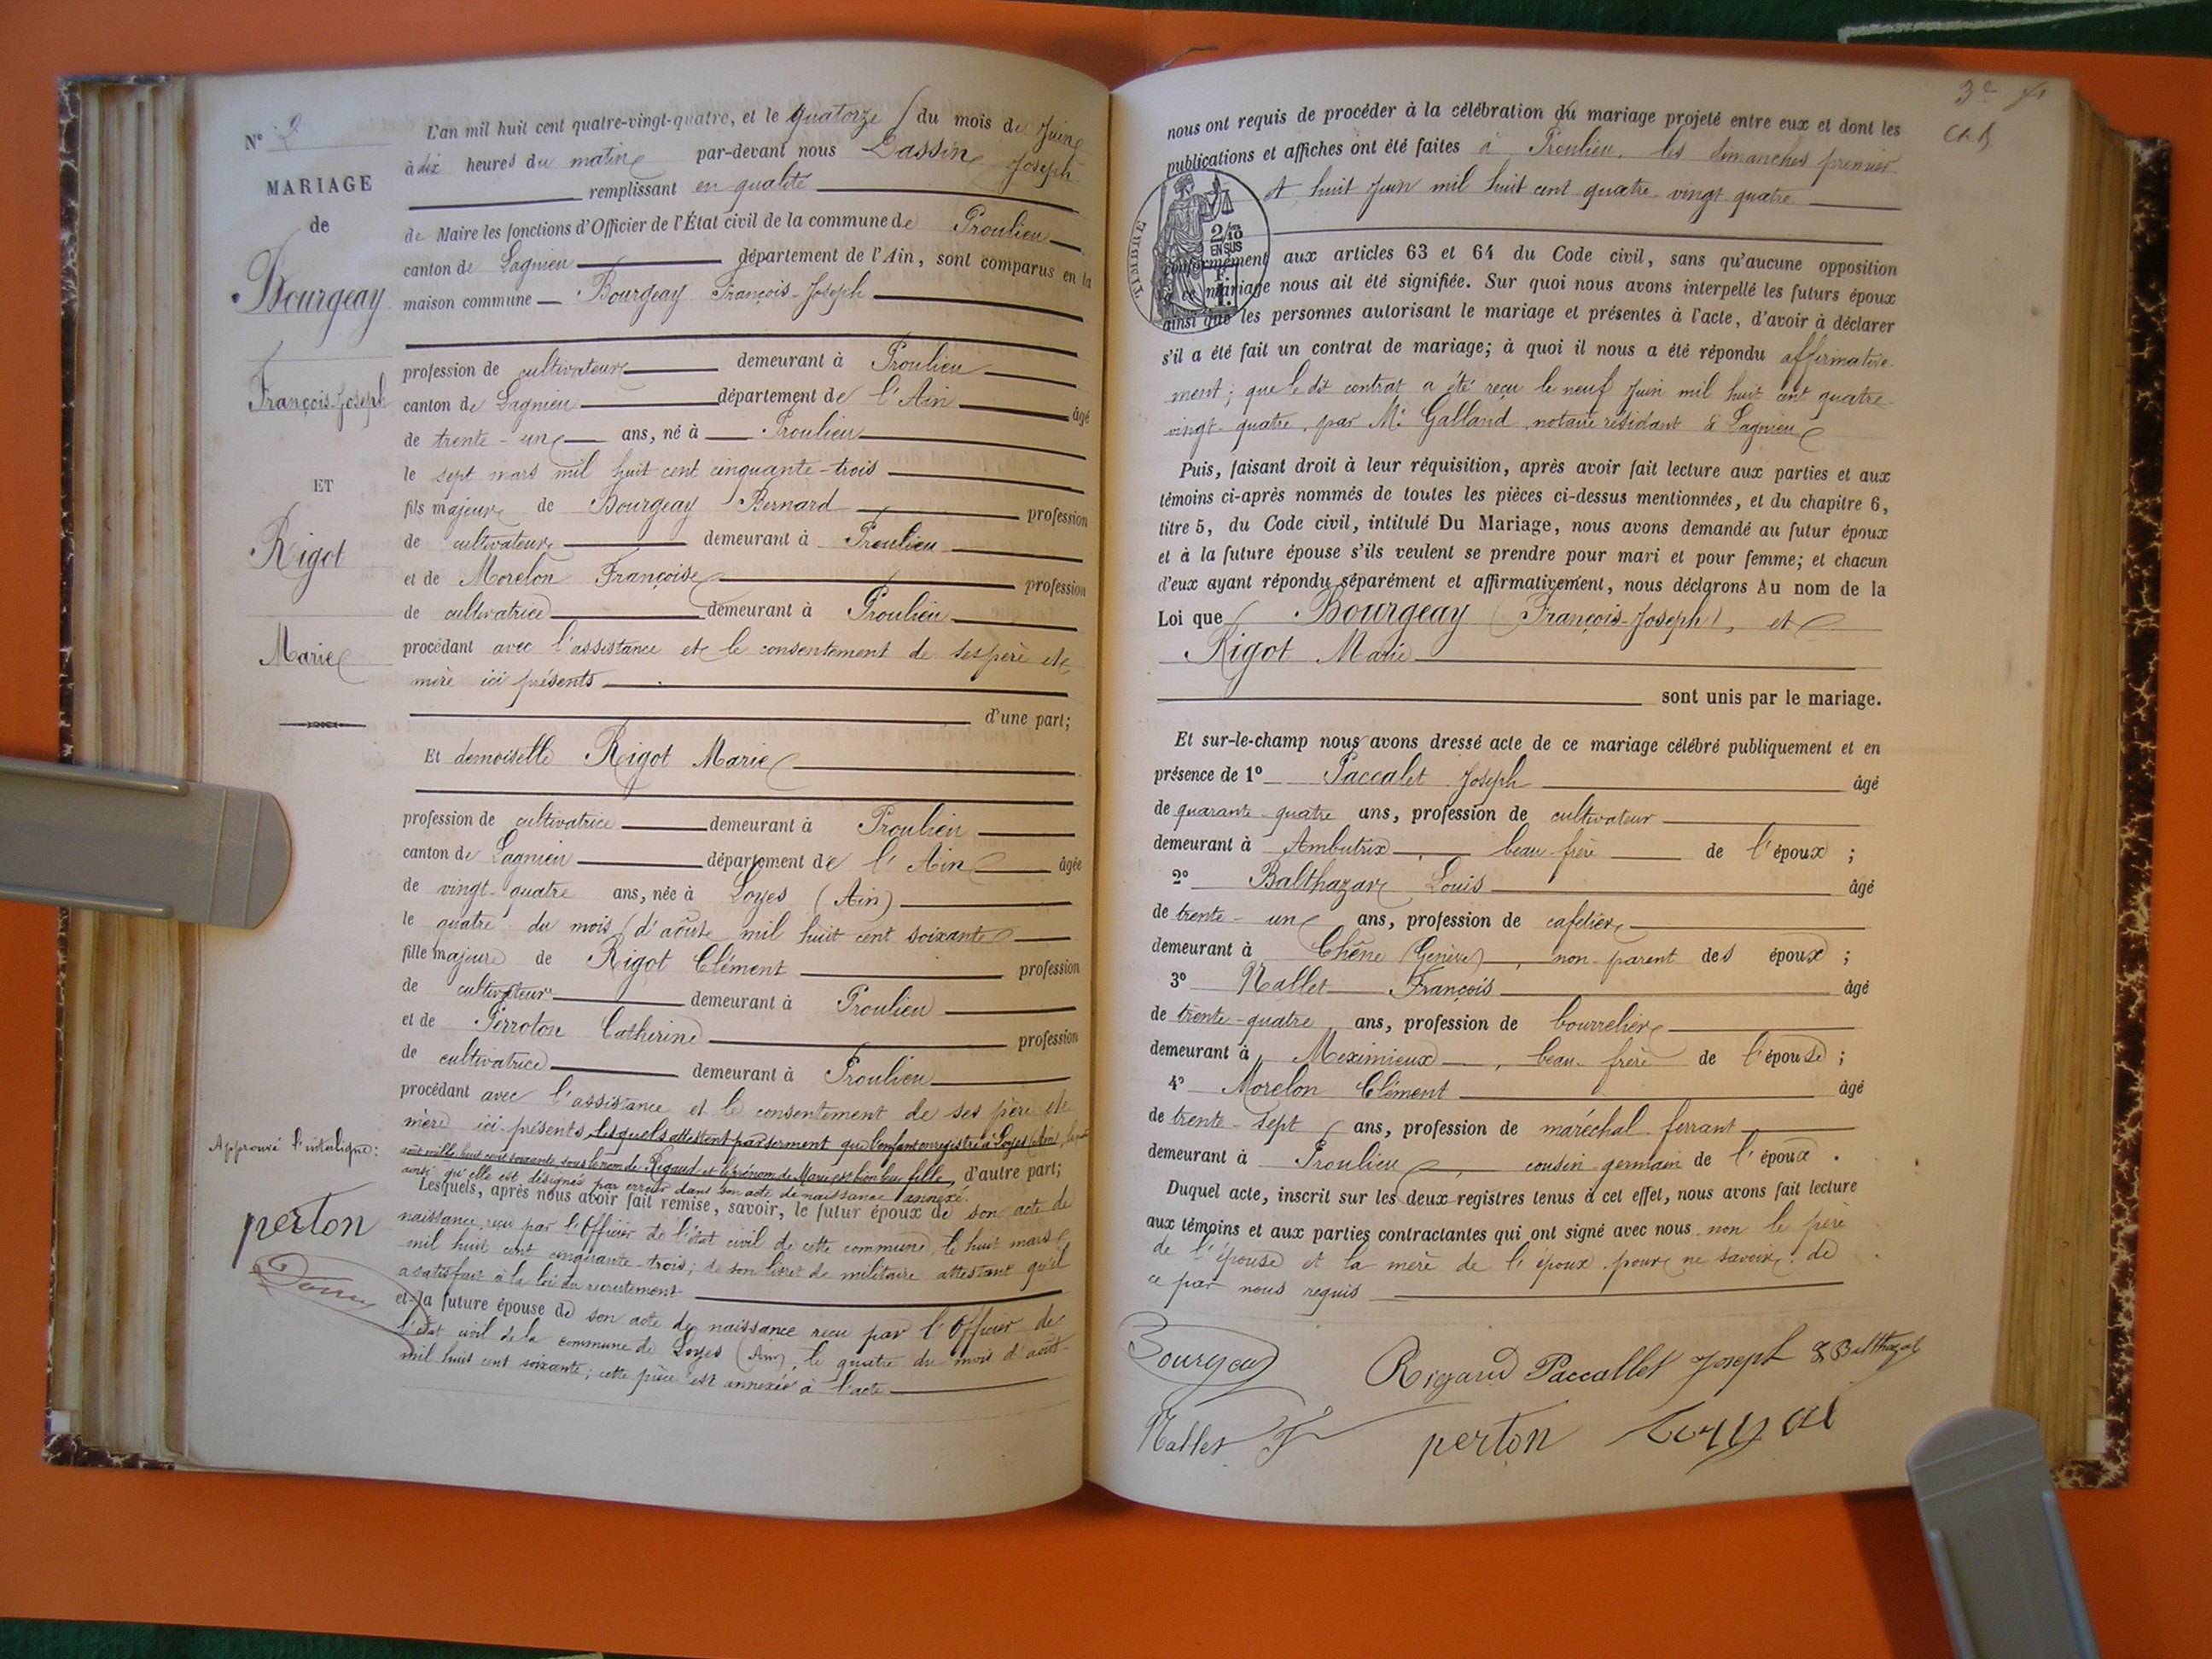 N° 2
MARIAGE
de
Bourgeay
François-Joseph
ET
Rigot
Marie
Approuvé l'interligne:
perton
L'an mil huit cent quatre-vingt-quatre, et le quatorze du mois de Juin
à dix heures du matin par-devant nous Dassin Joseph
remplissant en qualité
de Maire les fonctions d'Officier de l'État civil de la commune de Proulieu
canton de Lagnieu département de l'Ain, sont comparus en la
maison commune Bourgeay François-Joseph
profession de cultivateur demeurant à Proulieu
canton de Lagnieu département de l'Ain âgé
de trente-un ans, né à Proulieu
le sept mars mil huit cent cinquante-trois
fils majeur de Bourgeay Bernard profession
de cultivateur demeurant à Proulieu
et de Morelon Françoise profession
de cultivatrice demeurant à Proulieu
procédant avec l'assistance et le consentement de ses père et
mère ici présents
d'une part;
Et demoiselle Rigot Marie
profession de cultivatrice demeurant à Proulieu
canton de Lagnieu département de l'Ain âgée
de vingt-quatre ans, née à Loyes (Ain)
le quatre du mois d'août mil huit cent soixante
fille majeure de Rigot Clément profession
de cultivateur demeurant à Proulieu
et de Perroton Catherine profession
de cultivatrice demeurant à Proulieu
procédant avec l'assistance et le consentement de ses père et
mère ici présents, lesquels attestent par serment que l'enfant enregistré à Loyes (Ain), le quatre
août mille huit cent soixante, sous le nom de Rigaud et le prénom de Marie est bien leur fille, d'autre part;
ainsi qu'elle est désignée par erreur dans son acte de naissance annexé.
Lesquels, après nous avoir fait remise, savoir, le futur époux de son acte de
naissance, reçu par l'Officier de l'état civil de cette commune, le huit mars
mil huit cent cinquante-trois; de son livret de militaire attestant qu'il
a satisfait à la loi du recrutement
et la future épouse de son acte de naissance reçu par l'Officier de
l'état civil de la commune de Loyes (Ain), le quatre du mois d'août
mil huit cent soixante; cette pièce est annexée à l'acte
nous ont requis de procéder à la célébration du mariage projeté entre eux et dont les
publications et affiches ont été faites à Proulieu, les dimanches premier
et huit Juin mil huit cent quatre-vingt quatre
TIMBRE
2/10
EN SUS
conformément aux articles 63 et 64 du Code civil, sans qu'aucune opposition
à ce mariage nous ait été signifiée. Sur quoi nous avons interpellé les futurs époux
ainsi que les personnes autorisant le mariage et présentes à l'acte, d'avoir à déclarer
s'il a été fait un contrat de mariage; à quoi il nous a été répondu affirmative-
ment; que le dit contrat a été reçu le neuf Juin mil huit cent quatre-
vingt-quatre, par Me Galland, notaire résidant à Lagnieu
Puis, faisant droit à leur réquisition, après avoir fait lecture aux parties et aux
témoins ci-après nommés de toutes les pièces ci-dessus mentionnées, et du chapitre 6,
titre 5, du Code civil, intitulé Du Mariage, nous avons demandé au futur époux
et à la future épouse s'ils veulent se prendre pour mari et pour femme; et chacun
d'eux ayant répondu séparément et affirmativement, nous déclarons Au nom de la
Loi que Bourgeay (François-Joseph), et
Rigot Marie
sont unis par le mariage.
Et sur-le-champ nous avons dressé acte de ce mariage célébré publiquement et en
présence de 1° Paccalet Joseph âgé
de quarante-quatre ans, profession de cultivateur
demeurant à Ambutrix, beau-frère de l'époux;
2° Balthazar Louis âgé
de trente-un ans, profession de cafetier
demeurant à Chêne (Genève), non-parent des époux;
3° Nallet François âgé
de trente-quatre ans, profession de bourrelier
demeurant à Meximieux, beau-frère de l'épouse;
4° Morelon Clément âgé
de trente-sept ans, profession de maréchal-ferrant
demeurant à Proulieu, cousin germain de l'époux.
Duquel acte, inscrit sur les deux registres tenus à cet effet, nous avons fait lecture
aux témoins et aux parties contractantes qui ont signé avec nous non le père
de l'épouse et la mère de l'époux pour ne savoir, de
ce par nous requis
Bourgeay
Rigaud Paccallet Joseph Balthazat
Nallet F
perton